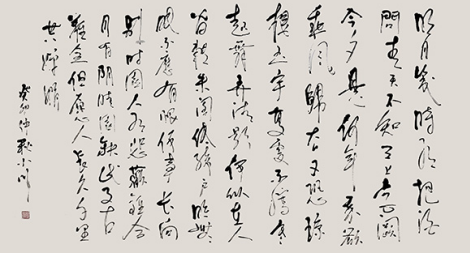 明月幾時有把酒
問青天不知天上宮闕
今夕是何年我欲
乘風歸去又恐瓊
樓玉宇高處不勝寒
起舞弄清影何似在人
間轉朱閣低綺戶照無
眠不應有恨何事長向
別時圓人有悲歡離合
月有陰晴圓缺此事古
難全但願人長久千里
共嬋娟
癸卯仲秋小川